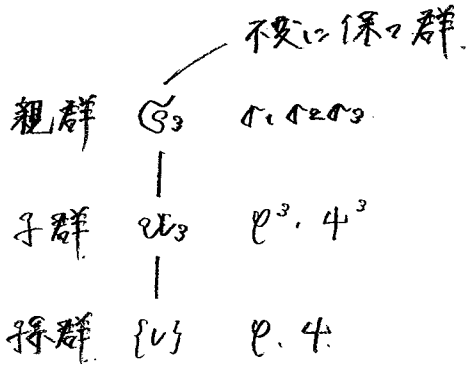 不変に保つ群.
親群 𝔖3 σ1 σ2 σ3
子群 𝔄3 φ³, ψ³
孫群 {1} φ, ψ